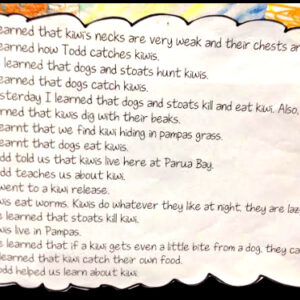 earned that kiwi's necks are very weak and their chests ar
earned how Todd catches kiwis.
learned that dogs and stoats hunt kiwis.
earned that dogs catch kiwis.
sterday I learned that dogs and stoats kill and eat kiwi. Also,
rned that kiwis dig with their beaks.
earnt that we find kiwi hiding in pampas grass.
earnt that dogs eat kiwis.
dd told us that kiwis live here at Parua Bay.
dd teaches us about kiwi.
went to a kiwi release.
wis eat worms. Kiwis do whatever they like at night, they are laz
e learned that stoats kill kiwi.
wis live in Pampas.
e learned that if a kiwi gets even a little bite from a dog, they ca
learned that kiwi catch their own food.
odd helped us learn about kiwi